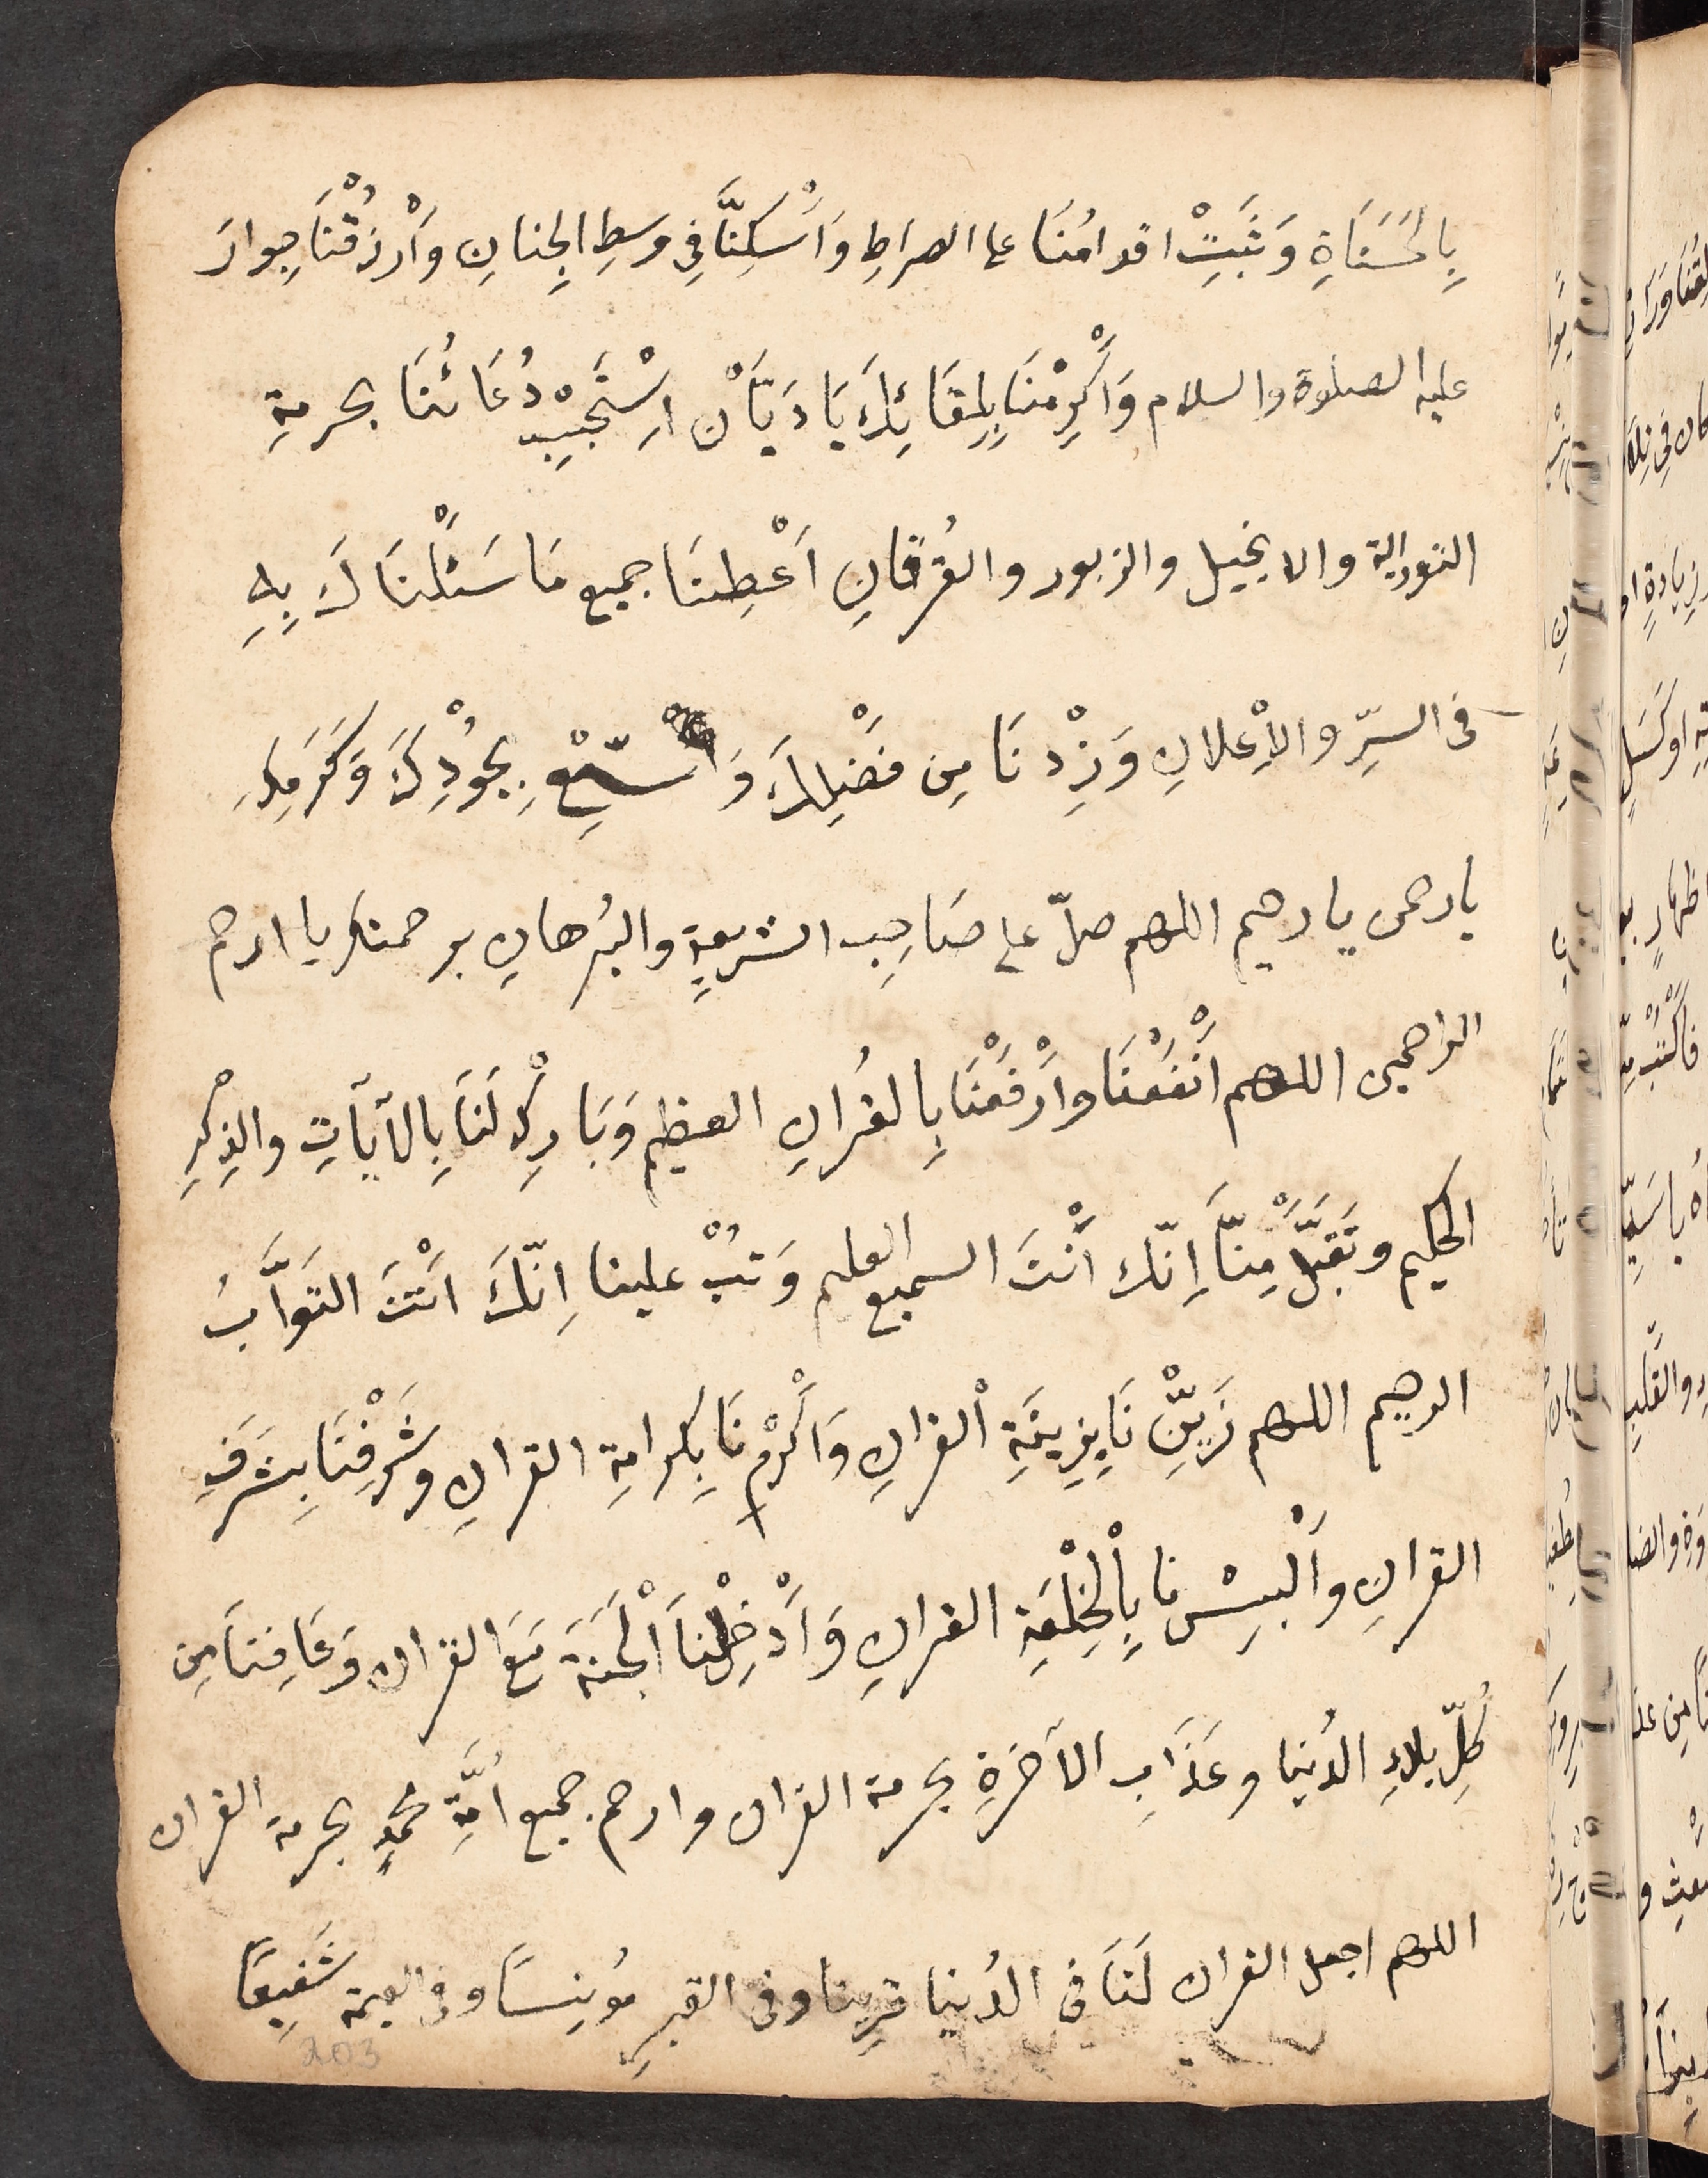 بِالْحَسَنَاةِ وَثَبِّتْ اقدامُنَا على الصراطِ وَاَسْكِنَّا فِي وسطِ الجِنانِ وَاَرْزُقْنَا جِوارَ
عليه الصلوة والسلام وَاَكْرِمْنَا بِلِقَائِكَ يَا دَيَّانْ اِسْتَجِيبْ دُعَائَنَا بحرمةِ
التورٰية والانجيل والزبور والفُرقانِ اَعْطِنَا جميع مَا سَئَلْنَاكَ بِهِ
فى السِرِّ والاِعْلانِ وَزِدْنَا مِن فَضْلِكَ وَ بِجُوْدِكَ وَكَرَمِكَ
يا رحمن يا رحيم اللهم صلّ على صَاحِبِ الشريعةِ والبُرهانِ برحمتك يا ارحم
الراحمين اللهم اَنْفَعْنَا وَاَرْفَعْنَا بِالقُرانِ العظيم وَبَارِكْ لَنَا بِالآيَاتِ والذِكْرِ
الحكيم وتَقَبَّلْ مِنَّا اِنّك اَنْتَ السميع العليم وَتُبْ علينا اِنّكَ اَنْتَ التَوَّابُ
الرحيم اللهم زَيِّنْ نَا بِزِينَةِ القرانِ وَاَكْرِمْ نَا بِكرامةِ القرانِ وشَرِّفْنَا بِشَرَفِ
القرانِ وَاَلْبِسْ نا بِاْلخِلْعَةِ القرانِ وَاَدْخِلْنَا اْلجَنةَ مَعَ القران وَعَافِنَا مِن
كُلِّ بلاءِ الدُنيا وعَذَابِ الآخرةِ بحرمة القران وارحم جميع اُمَّةِ محمدٍ بحرمة القران
اللهم اجعل القران لَنَا فى الدُنيا قرينا وفى القبرِ مُونِسًا وفى القيمة شَفِيعًا
203